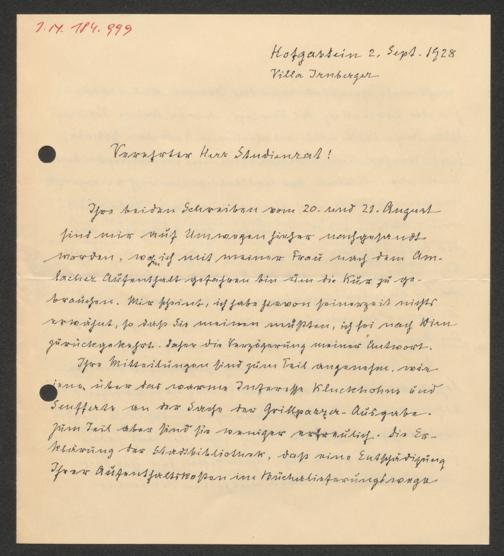 I.N. 184.999
Hofgastein 2. Sept. 1928
Villa Irnberger
Verehrter Herr Studienrat!
Ihre beiden Schreiben vom 20. und 21. August
sind mir auf Umwegen hieher nachgesandt
worden, wo ich mit meiner Frau nach dem Am-
lacher Aufenthalt gefahren bin um die Kur zu ge-
brauchen. Mir scheint, ich habe hievon seinerzeit nichts
erwähnt, so daß Sie meinen mußten, ich sei nach Wien
zurückgekehrt. Daher die Verzögerung meiner Antwort.
Ihre Mitteilungen sind zum Teil angenehm, wie
jene über das warme Interesse Kluckhohns und
Seufferts an der Sache der Grillparzer-Ausgabe.
Zum Teil aber sind sie weniger erfreulich. Die Er-
klärung der Stadtbibliothek, daß eine Entschädigung
Ihrer Aufenthaltskosten im Bücherlieferungswege